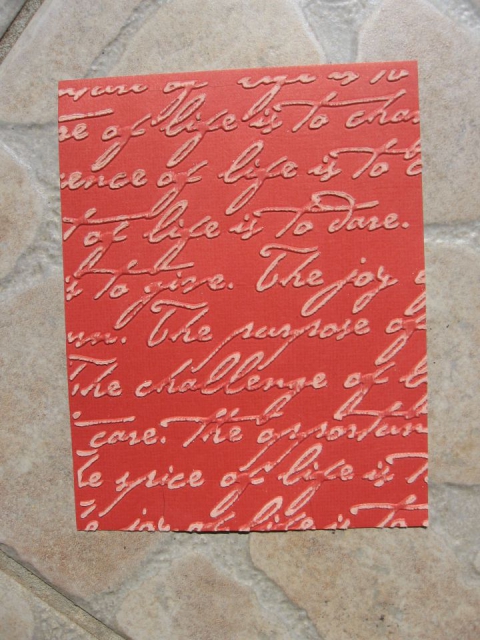 of life is to
of life is to cha
of life is to
of life is to dare.
to give. The joy
The purpose of
The challenge of
care. The opportun
spice of life is
joy of life is to